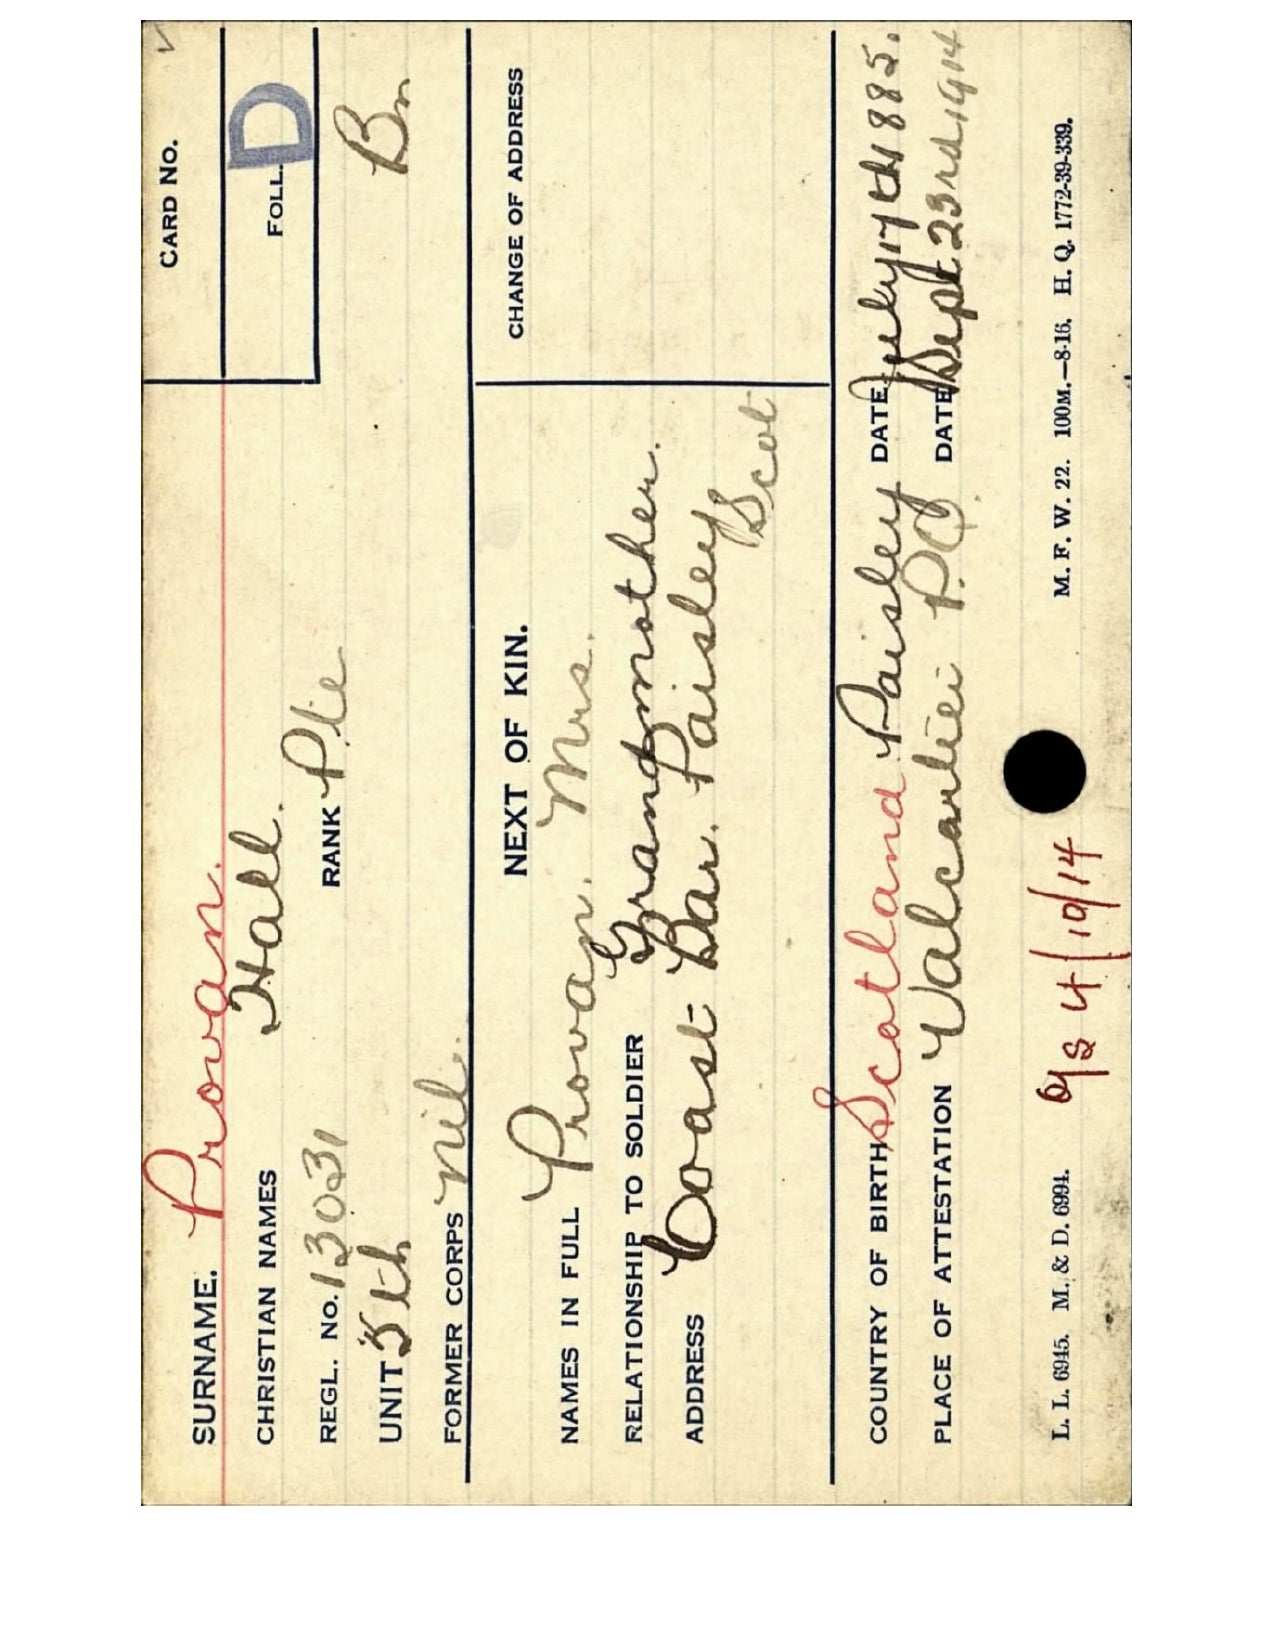 CARD NO.
SURNAME. Provan.
CHRISTIAN NAMES Hall.
FOLL. D
REGL. NO. 13031 RANK Pte
UNIT 5th Bn
FORMER CORPS nil.
NEXT OF KIN.
CHANGE OF ADDRESS
NAMES IN FULL Provan. Mrs.
RELATIONSHIP TO SOLDIER Grandmother.
ADDRESS Coast Bar. Paisley
Scot
COUNTRY OF BIRTH Scotland Paisley DATE July 17th 1885.
PLACE OF ATTESTATION Valcartier P.Q. DATE Sept 23rd, 1914
4/10/14
L. L. 6945. M. & D. 6994. M. F. W. 22. 100M.—8-16. H. Q. 1772-39-339.